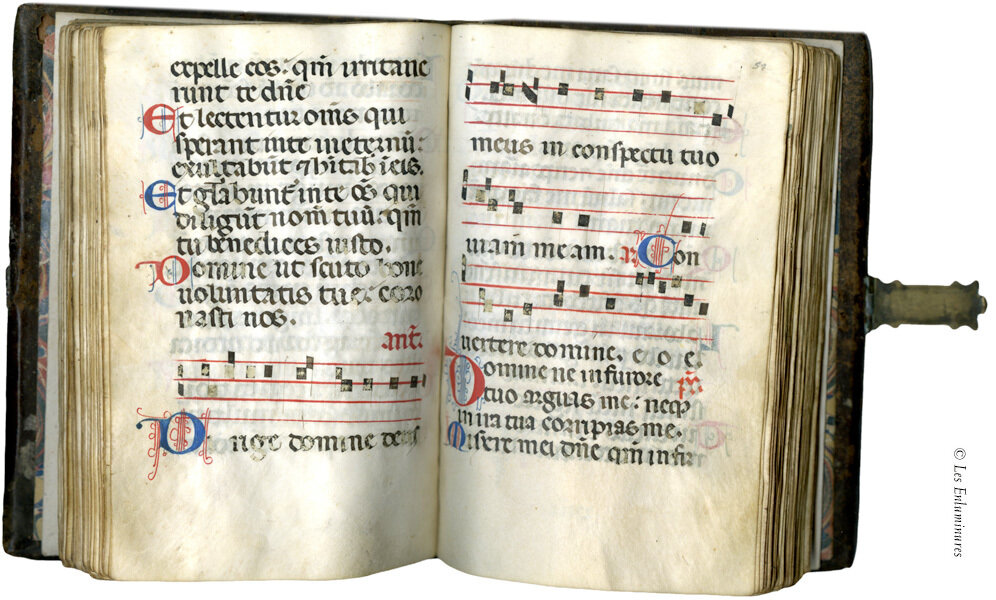 expelle eos: qm̄ irritaue
runt te dn̄e
Et lectentur om̄s qui
sperant inte ineternū:
exultabūt ⁊ hītab̄ ī eis.
Et gl̄abunt̄ inte oēs qui
diligūt nom̄ tuū: qm̄
tu benedices iusto.
Domine ut scuto bone
uoluntatis tue: coro
nasti nos.
ant̄.
Dirige domine deus
57
meus in conspectu tuo
uiam meam. Con
uertere domine. e o e
Domine ne in furore ps̄
tuo arguas me: neqꝫ
in ira tua corripias me.
Miserere mei dn̄e qm̄ infir
© Les Enluminures